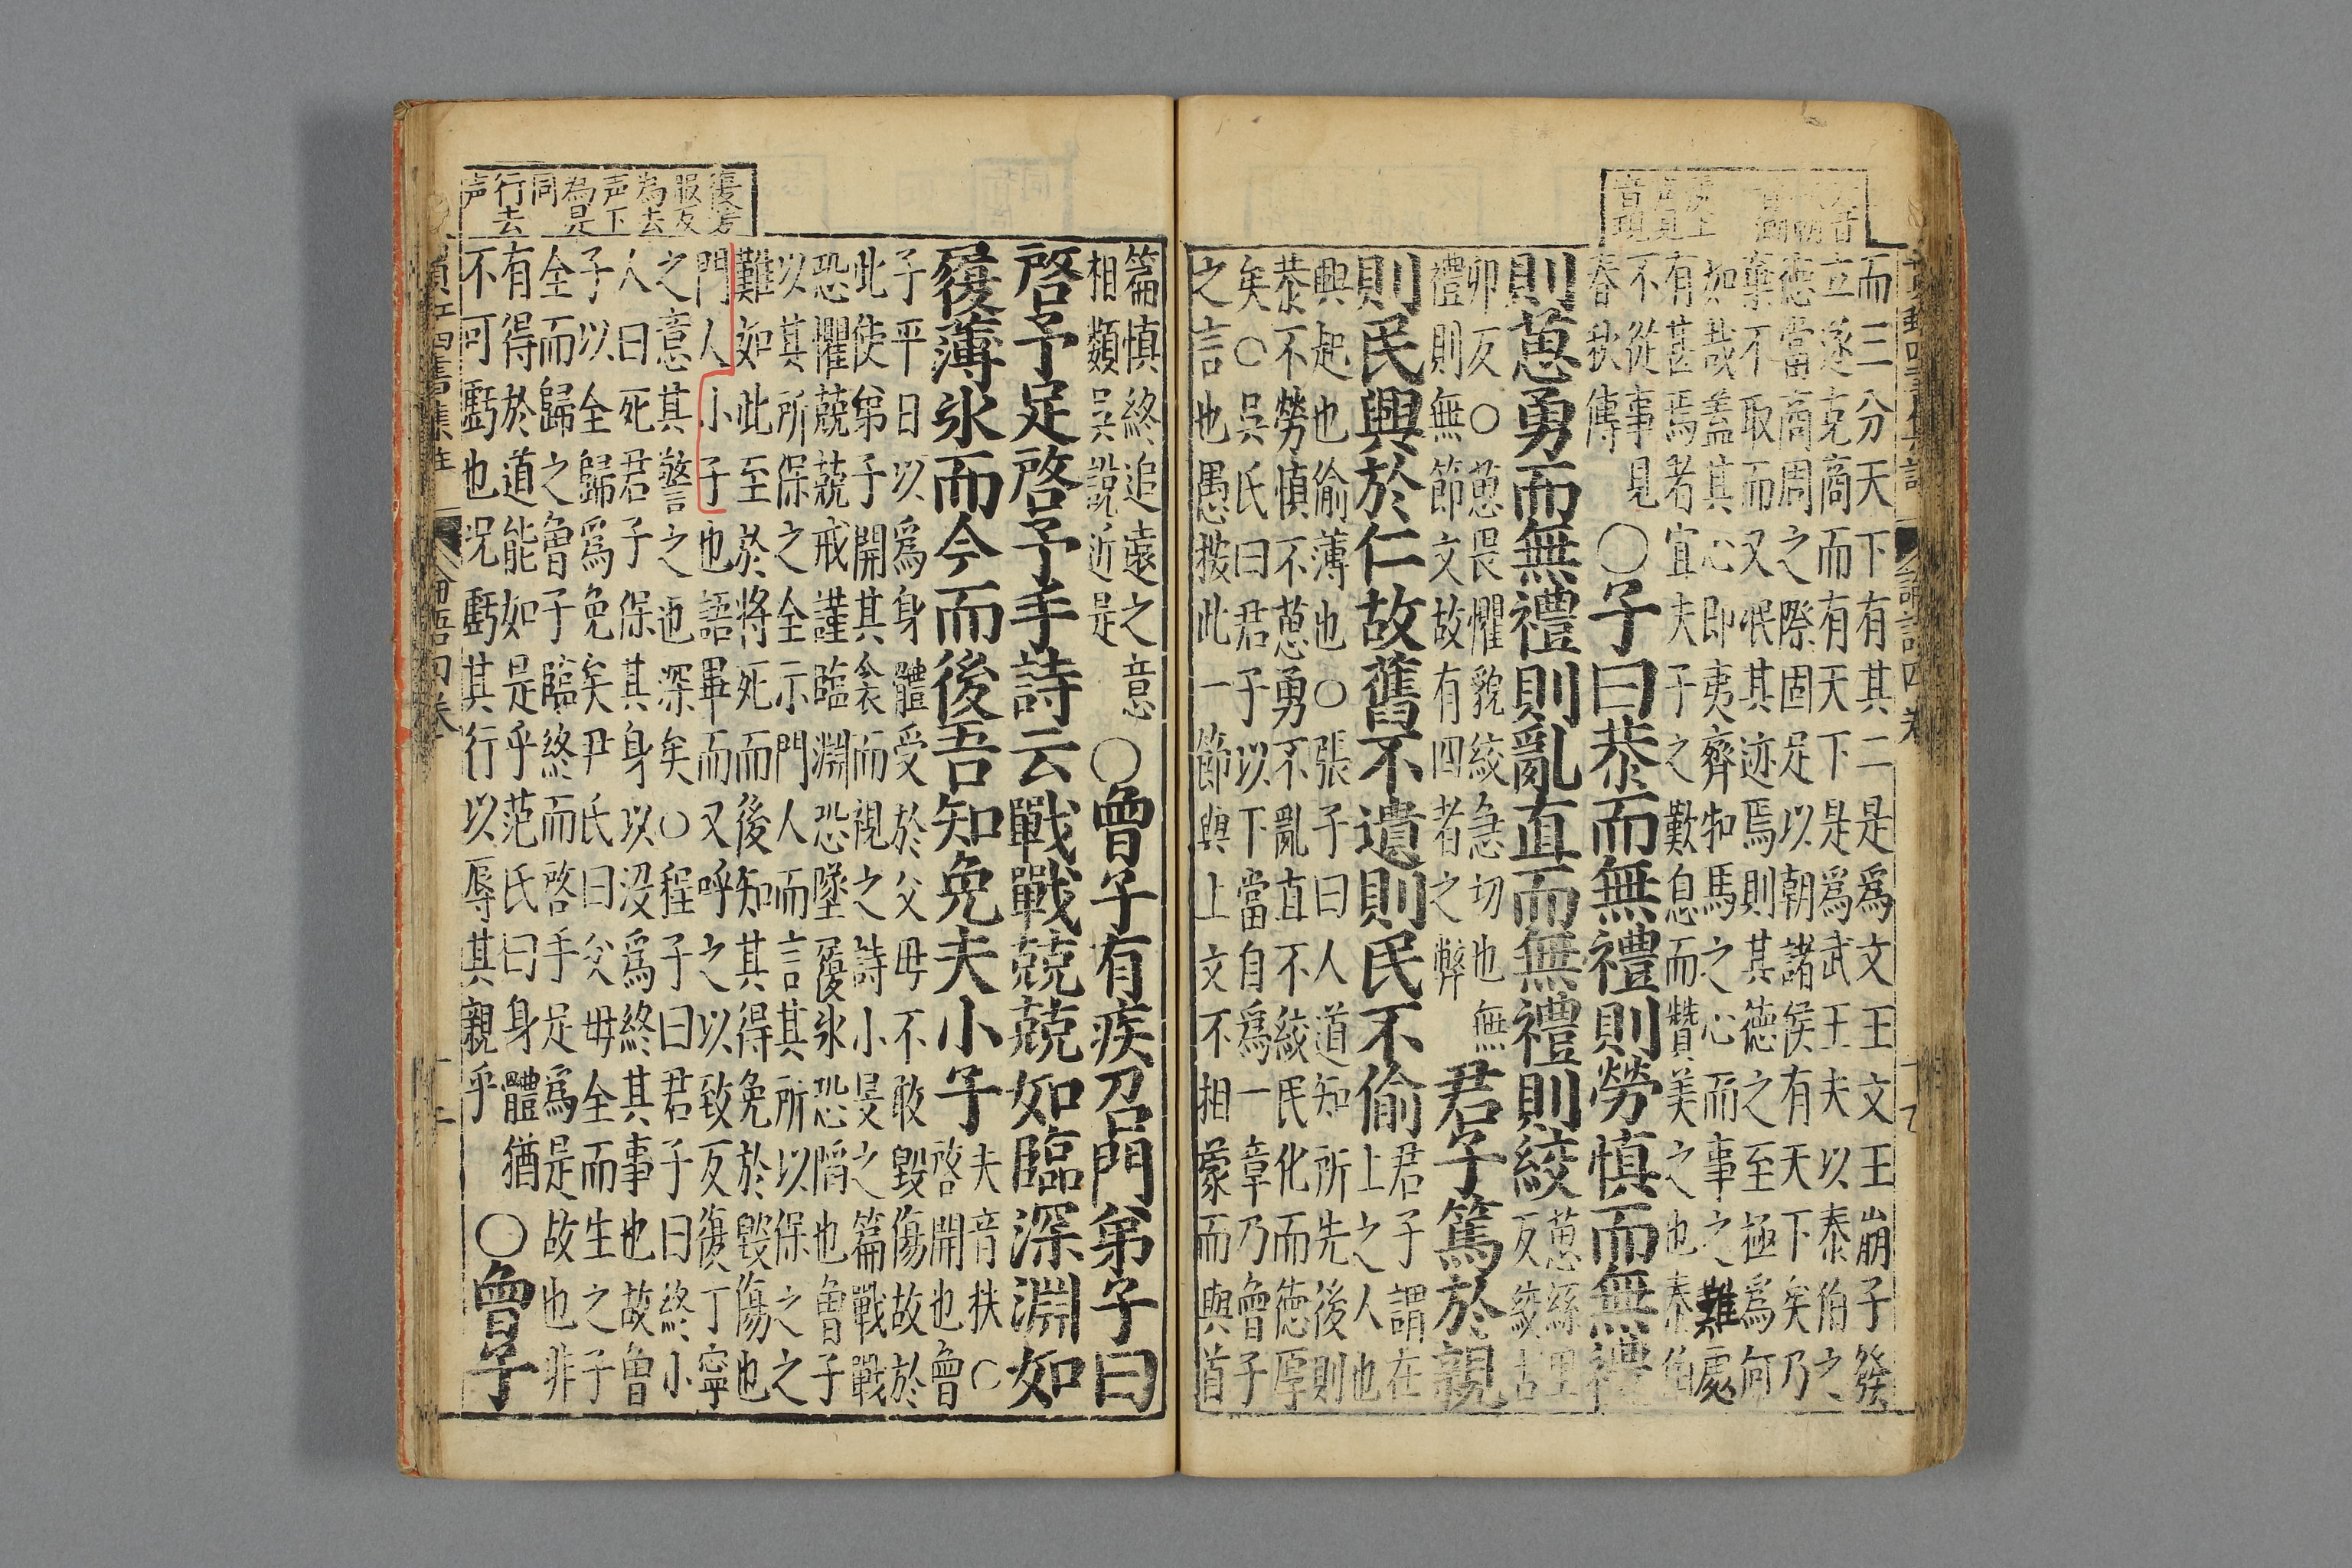 而三分天下有其二是爲文王文王崩子發
立遂克商而有天下是爲武王夫以泰伯之
德當商周之際固足以朝諸侯有天下矣乃
棄不取而又泯其迹焉則其德之至極爲何
如哉蓋其心即夷齊扣馬之心而事之難處
有甚焉者宜夫子之歎息而贊美之也泰伯
不從事見
春秋傳
○子曰恭而無禮則勞慎而無禮
則葸勇而無禮則亂直而無禮則絞
葸絲里
反絞古
卯反○葸畏懼貌絞急切也無
禮則無節文故有四者之弊
君子篤於親
則民興於仁故舊不遺則民不偷
君子謂在
上之人也
興起也偷薄也○張子曰人道知所先後則
恭不勞慎不葸勇不亂直不絞民化而德厚
矣○吳氏曰君子以下當自爲一章乃曾子
之言也愚按此一節與上文不相蒙而與首
復芳
服反
為去
声下
為是
同
行去
声
篇慎終追遠之意
相類吳說近是
○曾子有疾召門弟子曰
啓予足啓予手詩云戰戰兢兢如臨深淵如
履薄氷而今而後吾知免夫小子
夫音扶○
啓開也曾
子平日以爲身體受於父母不敢毀傷故於
此使弟子開其衾而視之詩小旻之篇戰戰
恐懼兢兢戒謹臨淵恐墜履氷恐陷也曾子
以其所保之全示門人而言其所以保之之
難如此至於將死而後知其得免於毀傷也
門人小子也語畢而又呼之以致反復丁寧
之意其警之也深矣○程子曰君子曰終小
人曰死君子保其身以沒爲終其事也故曾
子以全歸爲免矣尹氏曰父母全而生之子
全而歸之曾子臨終而啓手足爲是故也非
有得於道能如是乎范氏曰身體猶
不可虧也况虧其行以辱其親乎
○曾子